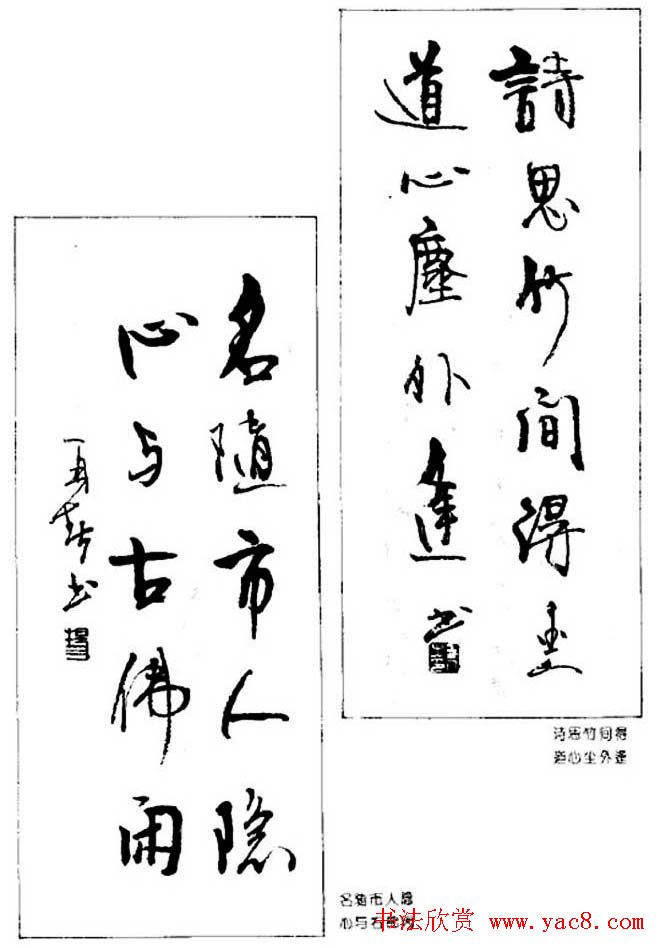 詩思竹间得
道心塵外逢 书
名随市人隐
心与古佛闲
书
诗思竹间得
道心尘外逢
名随市人隐
心与古佛
书法欣赏 www.yac8.com